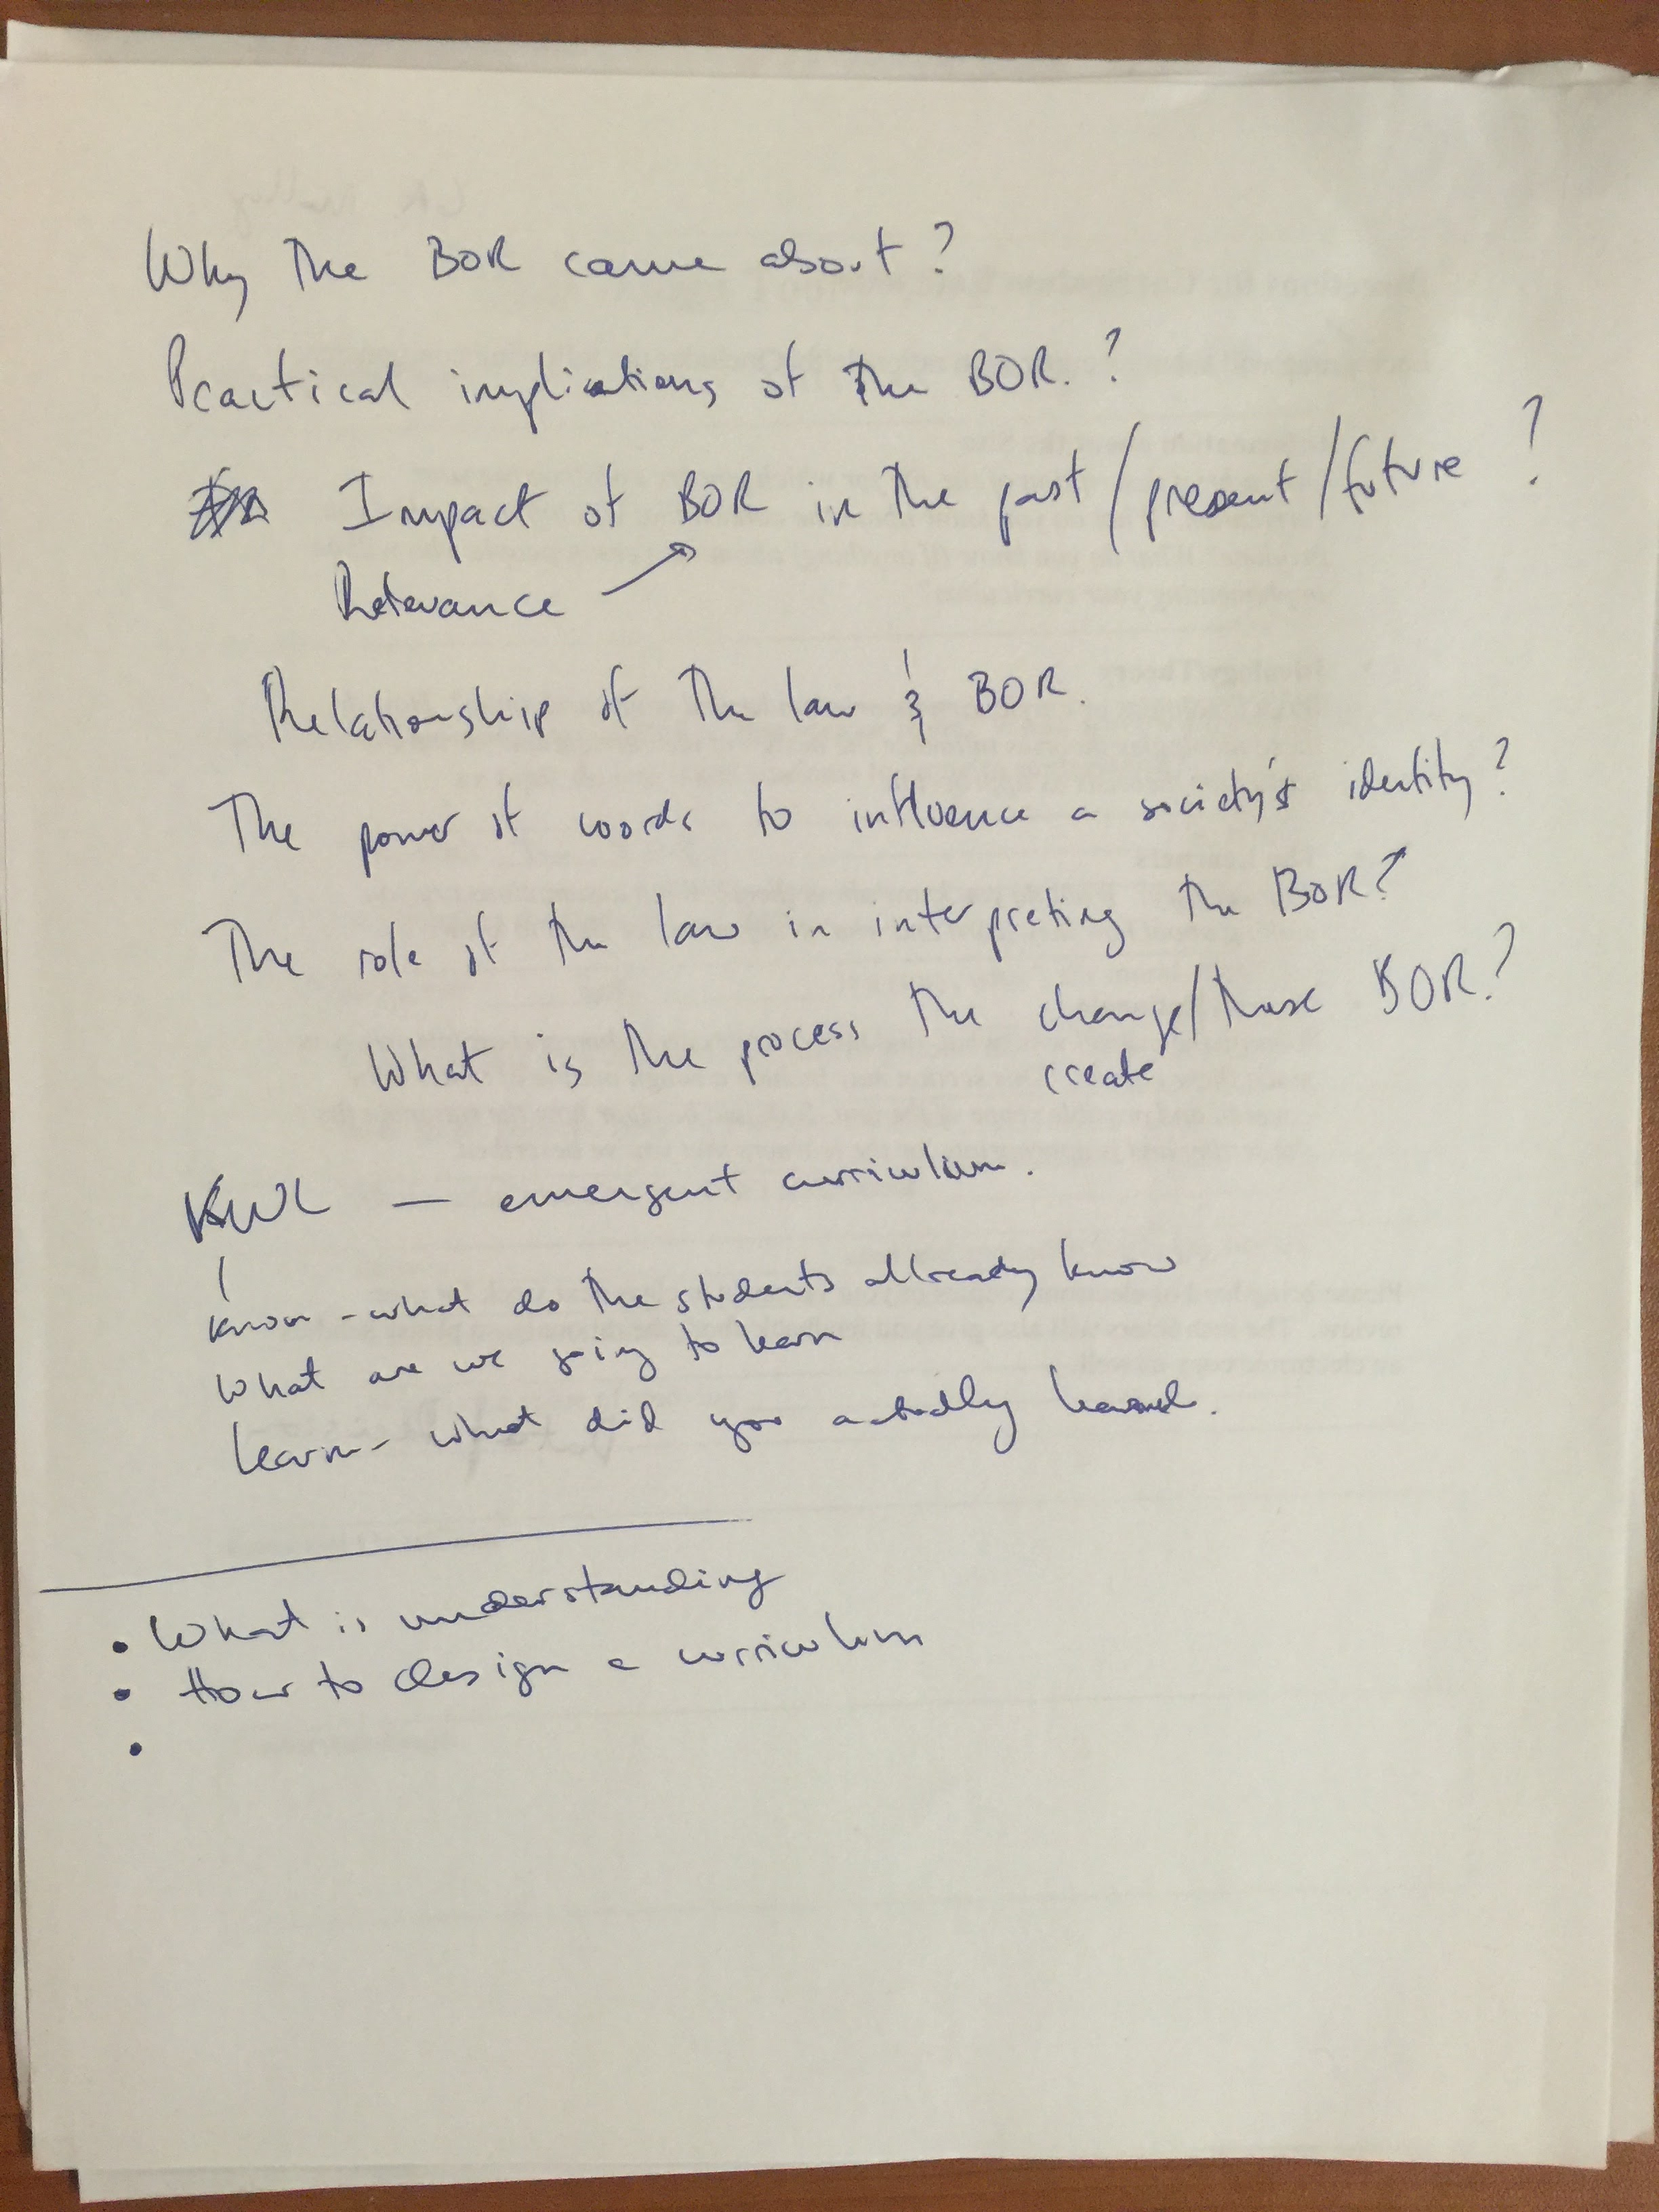 Why the BOR came about?
Practical implications of the BOR.?
Impact of BOR in the past/present/future?
Relevance
Relationship of the law & BOR.
The power of words to influence a society's identity?
The role of the law in interpreting the BOR?
What is the process the change/these BOR?
create
KWL — emergent curriculum.
know - what do the students allready know
What are we going to learn
learn - what did you actually learned.
• What is understanding
• How to design a curriculum
•